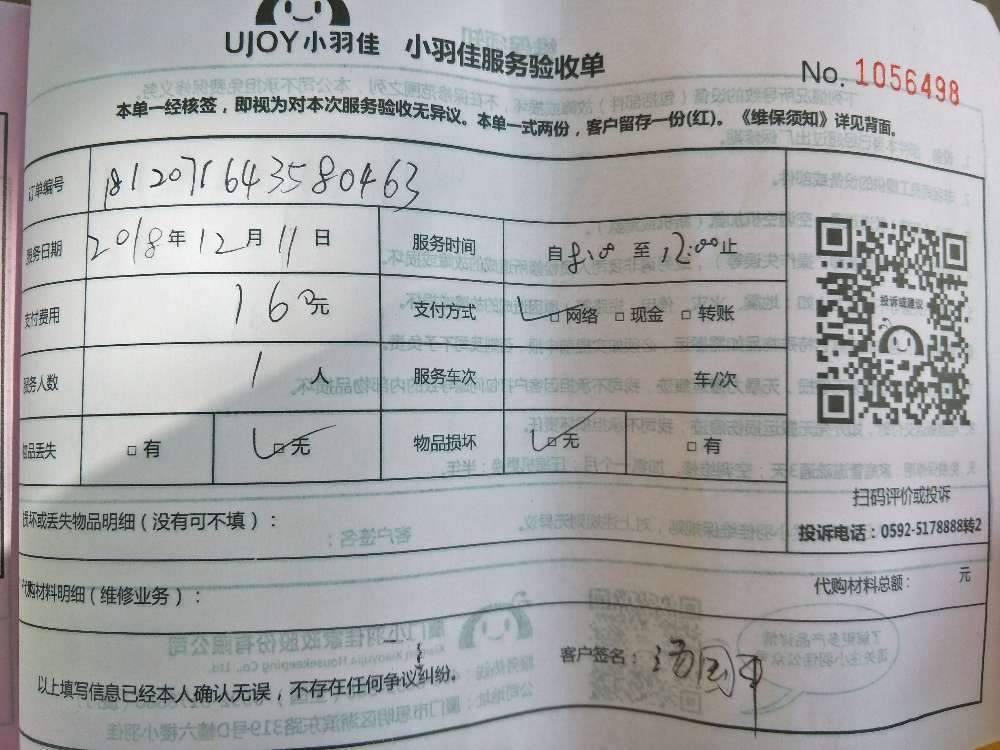 UJOY小羽佳 小羽佳服务验收单
No. 1056498
本单一经核签，即视为对本次服务验收无异议。本单一式两份，客户留存一份(红)。《维保须知》详见背面。
订单编号 812071643580463
服务日期 2018年12月11日 服务时间 自8:00至12:00止
支付费用 160元 支付方式 □网络 □现金 □转账
服务人数 1人 服务车次 车/次
物品丢失 □有 □无 物品损坏 □无 □有
投诉或建议
扫码评价或投诉
投诉电话：0592-5178888转2
损坏或丢失物品明细（没有可不填）：
代购材料明细（维修业务）： 代购材料总额： 元
以上填写信息已经本人确认无误，不存在任何争议纠纷。 客户签名：